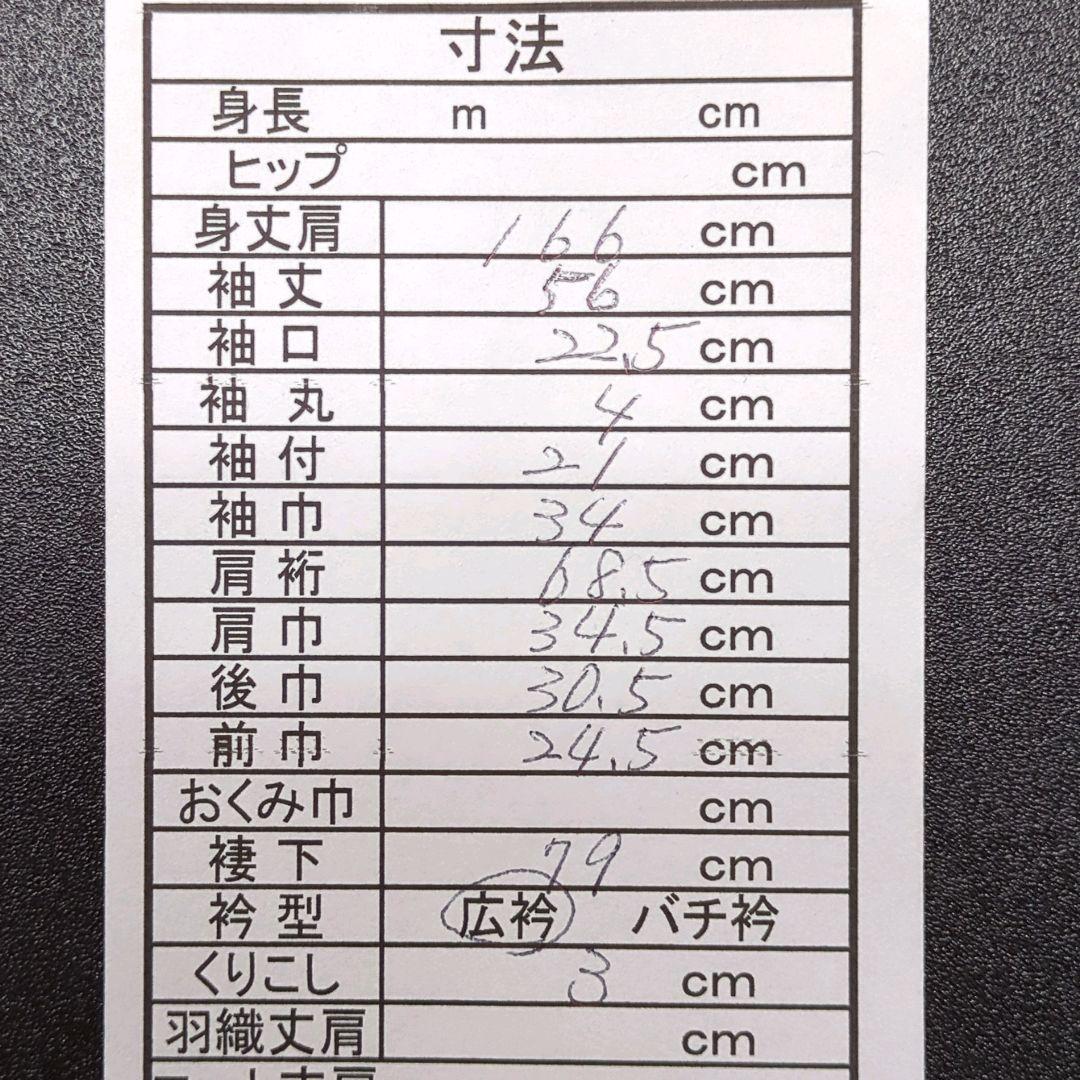 寸法
身長 m cm
ヒップ cm
身丈肩 166 cm
袖丈 56 cm
袖口 22.5 cm
袖丸 4 cm
袖付 21 cm
袖巾 34 cm
肩裄 68.5 cm
肩巾 34.5 cm
後巾 30.5 cm
前巾 24.5 cm
おくみ巾 cm
褄下 79 cm
衿型 広衿 バチ衿
くりこし 3 cm
羽織丈肩 cm